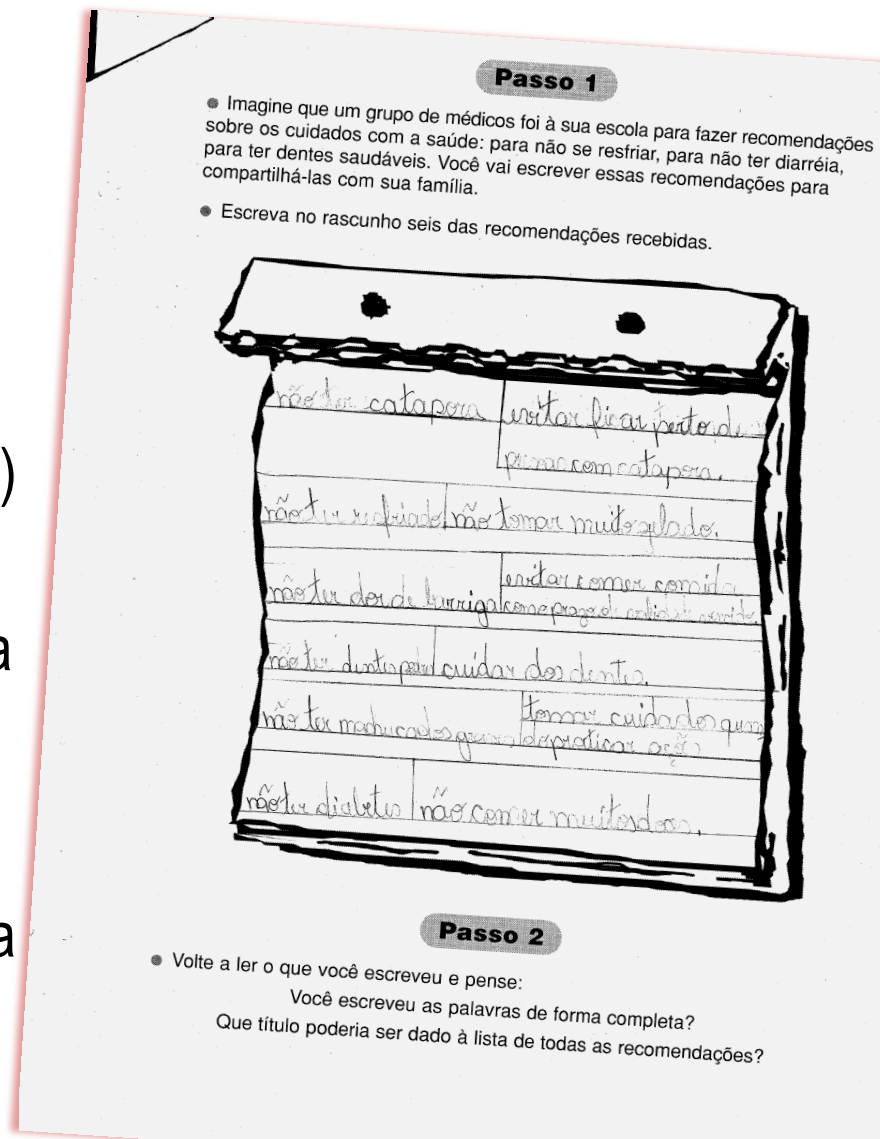 Passo 1
● Imagine que um grupo de médicos foi à sua escola para fazer recomendações
sobre os cuidados com a saúde: para não se resfriar, para não ter diarréia,
para ter dentes saudáveis. Você vai escrever essas recomendações para
compartilhá-las com sua família.
● Escreva no rascunho seis das recomendações recebidas.
não ter catapora evitar ficar perto de
com catapora.
não ter resfriado não tomar muito gelado.
evitar comer comida
não ter dor de barriga com o prazo de
não ter dentes cuidar dos dentes.
tomar cuidado
não ter machucados graves de praticar
não ter diabetes não comer muitos doces.
Passo 2
● Volte a ler o que você escreveu e pense:
Você escreveu as palavras de forma completa?
Que título poderia ser dado à lista de todas as recomendações?
)
a
a